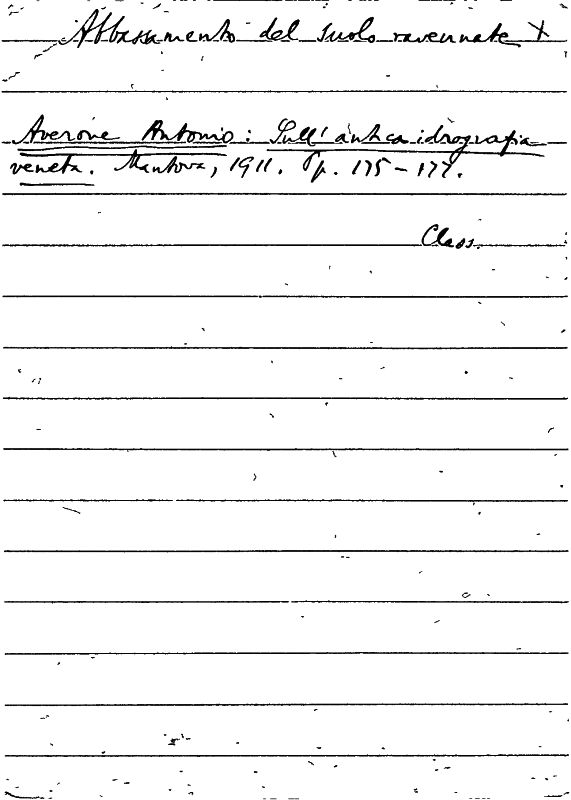 Abbassamento del suolo ravennate X
Averone Antonio: Sull'antica idrografia
veneta. Mantova, 1911. Pp. 175-177.
Class.